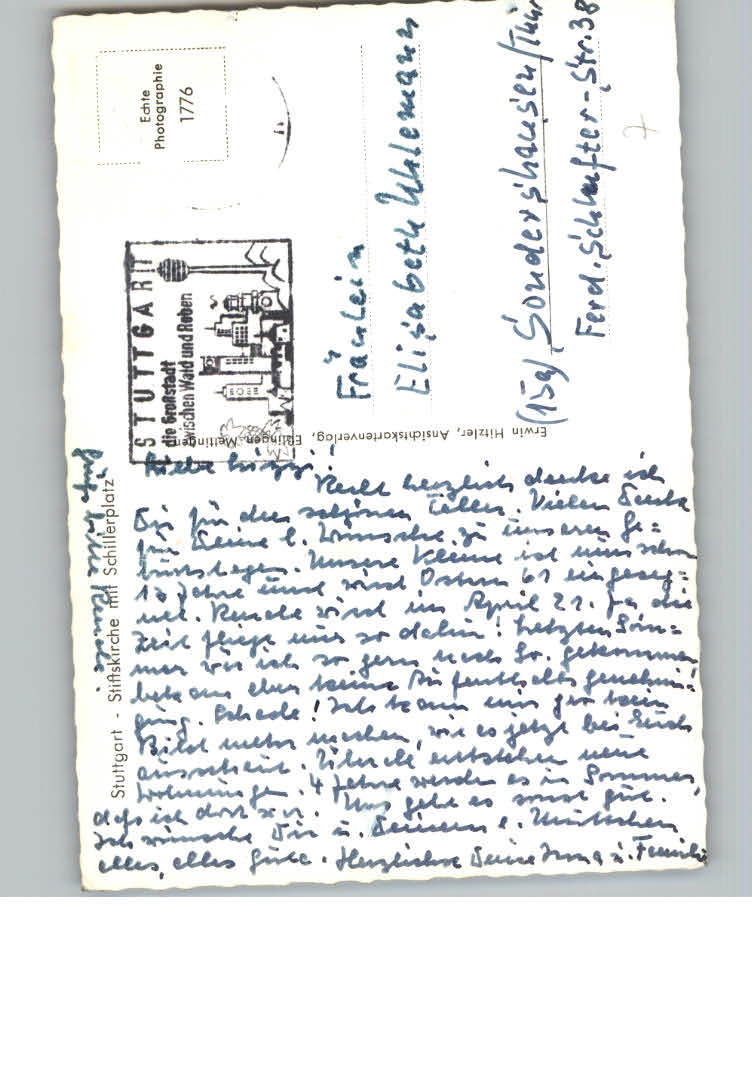 Echte
Photographie
1776
STUTTGART
die Großstadt
zwischen Wald und Reben
Fräulein
Elisabeth Uhlemann
(15a) Sondershausen/Thür
Ferd.-Schlufter-Str. 38
7
Erwin Hitzler, Ansichtskartenverlag, Eßlingen-Mettingen
Stuttgart - Stiftskirche mit Schillerplatz
Recht herzlich danke ich
Dir für den schönen Teller. Vielen Dank
für Deine l. Wünsche zu unseren Ge=
burtstagen. Unsere Kleine ist nun schon
Jahre und wird Ostern 61 eingeseg=
net. Renate wird im April 21. Ja die
Zeit fliegt nur so dahin! Letzten Som=
mer wär ich so gern nach So. gekommen
bekam aber keine Aufenthaltsgenehmi=
gung. Schade! Ich kann mir gar kein
Bild mehr machen, wie es jetzt bei Euch
ausschaut. Überall entstehen neue
Wohnungen. 4 Jahre werden es im Sommer,
daß ich dort war. Uns geht es sonst gut.
Ich wünsche Dir u. Deinem l. Muttchen
alles, alles Gute. Herzlichst Deine Irma u. Familie